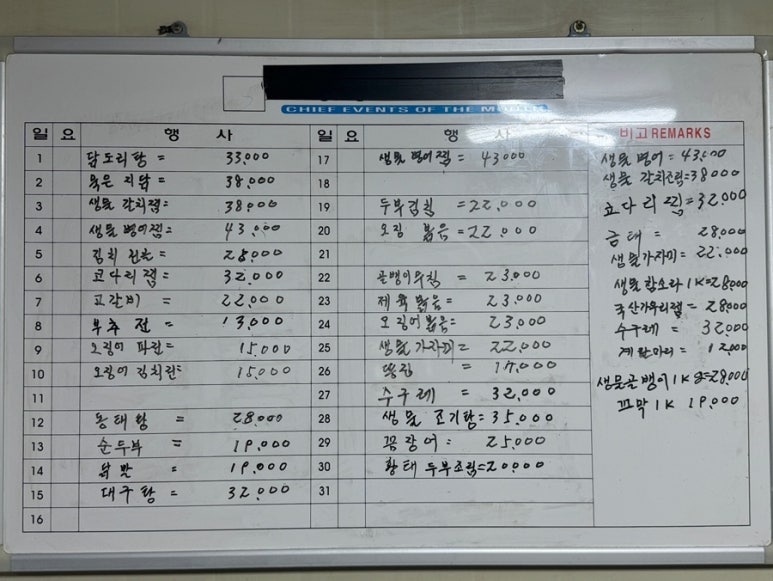 CHIEF EVENTS OF THE
일 요 행 사 일 요 행 사 비고 REMARKS
1 닭도리탕 = 33,000
2 묵은지닭 = 38,000
3 생물 갈치찜 = 38,000
4 생물 병어찜 = 43,000
5 김치 전골 = 28,000
6 코다리찜 = 32,000
7 고갈비 = 22,000
8 부추전 = 13,000
9 오징어 파전 = 15,000
10 오징어 김치전 = 15,000
11
12 동태탕 = 28,000
13 순두부 = 19,000
14 닭반 = 19,000
15 대구탕 = 32,000
16
17 생물 병어찜 = 43,000
18
19 두부김치 = 22,000
20 오징 볶음 = 22,000
21
22 골뱅이무침 = 23,000
23 제육볶음 = 23,000
24 오징어볶음 = 23,000
25 생물 가자미 = 22,000
26 = 17,000
27 수구레 = 32,000
28 생물 조기탕 = 35,000
29 꼼장어 = 25,000
30 황태 두부조림 = 20,000
31
생물 병어 = 43,000
생물 갈치조림 = 38,000
코다리찜 = 32,000
금태 = 28,000
생물가자미 = 22,000
생물 참소라 1K = 28,000
국산가오리찜 = 28,000
수구레 = 32,000
계란마리 = 12,000
생물골뱅이 1K = 28,000
꼬막 1K 19,000